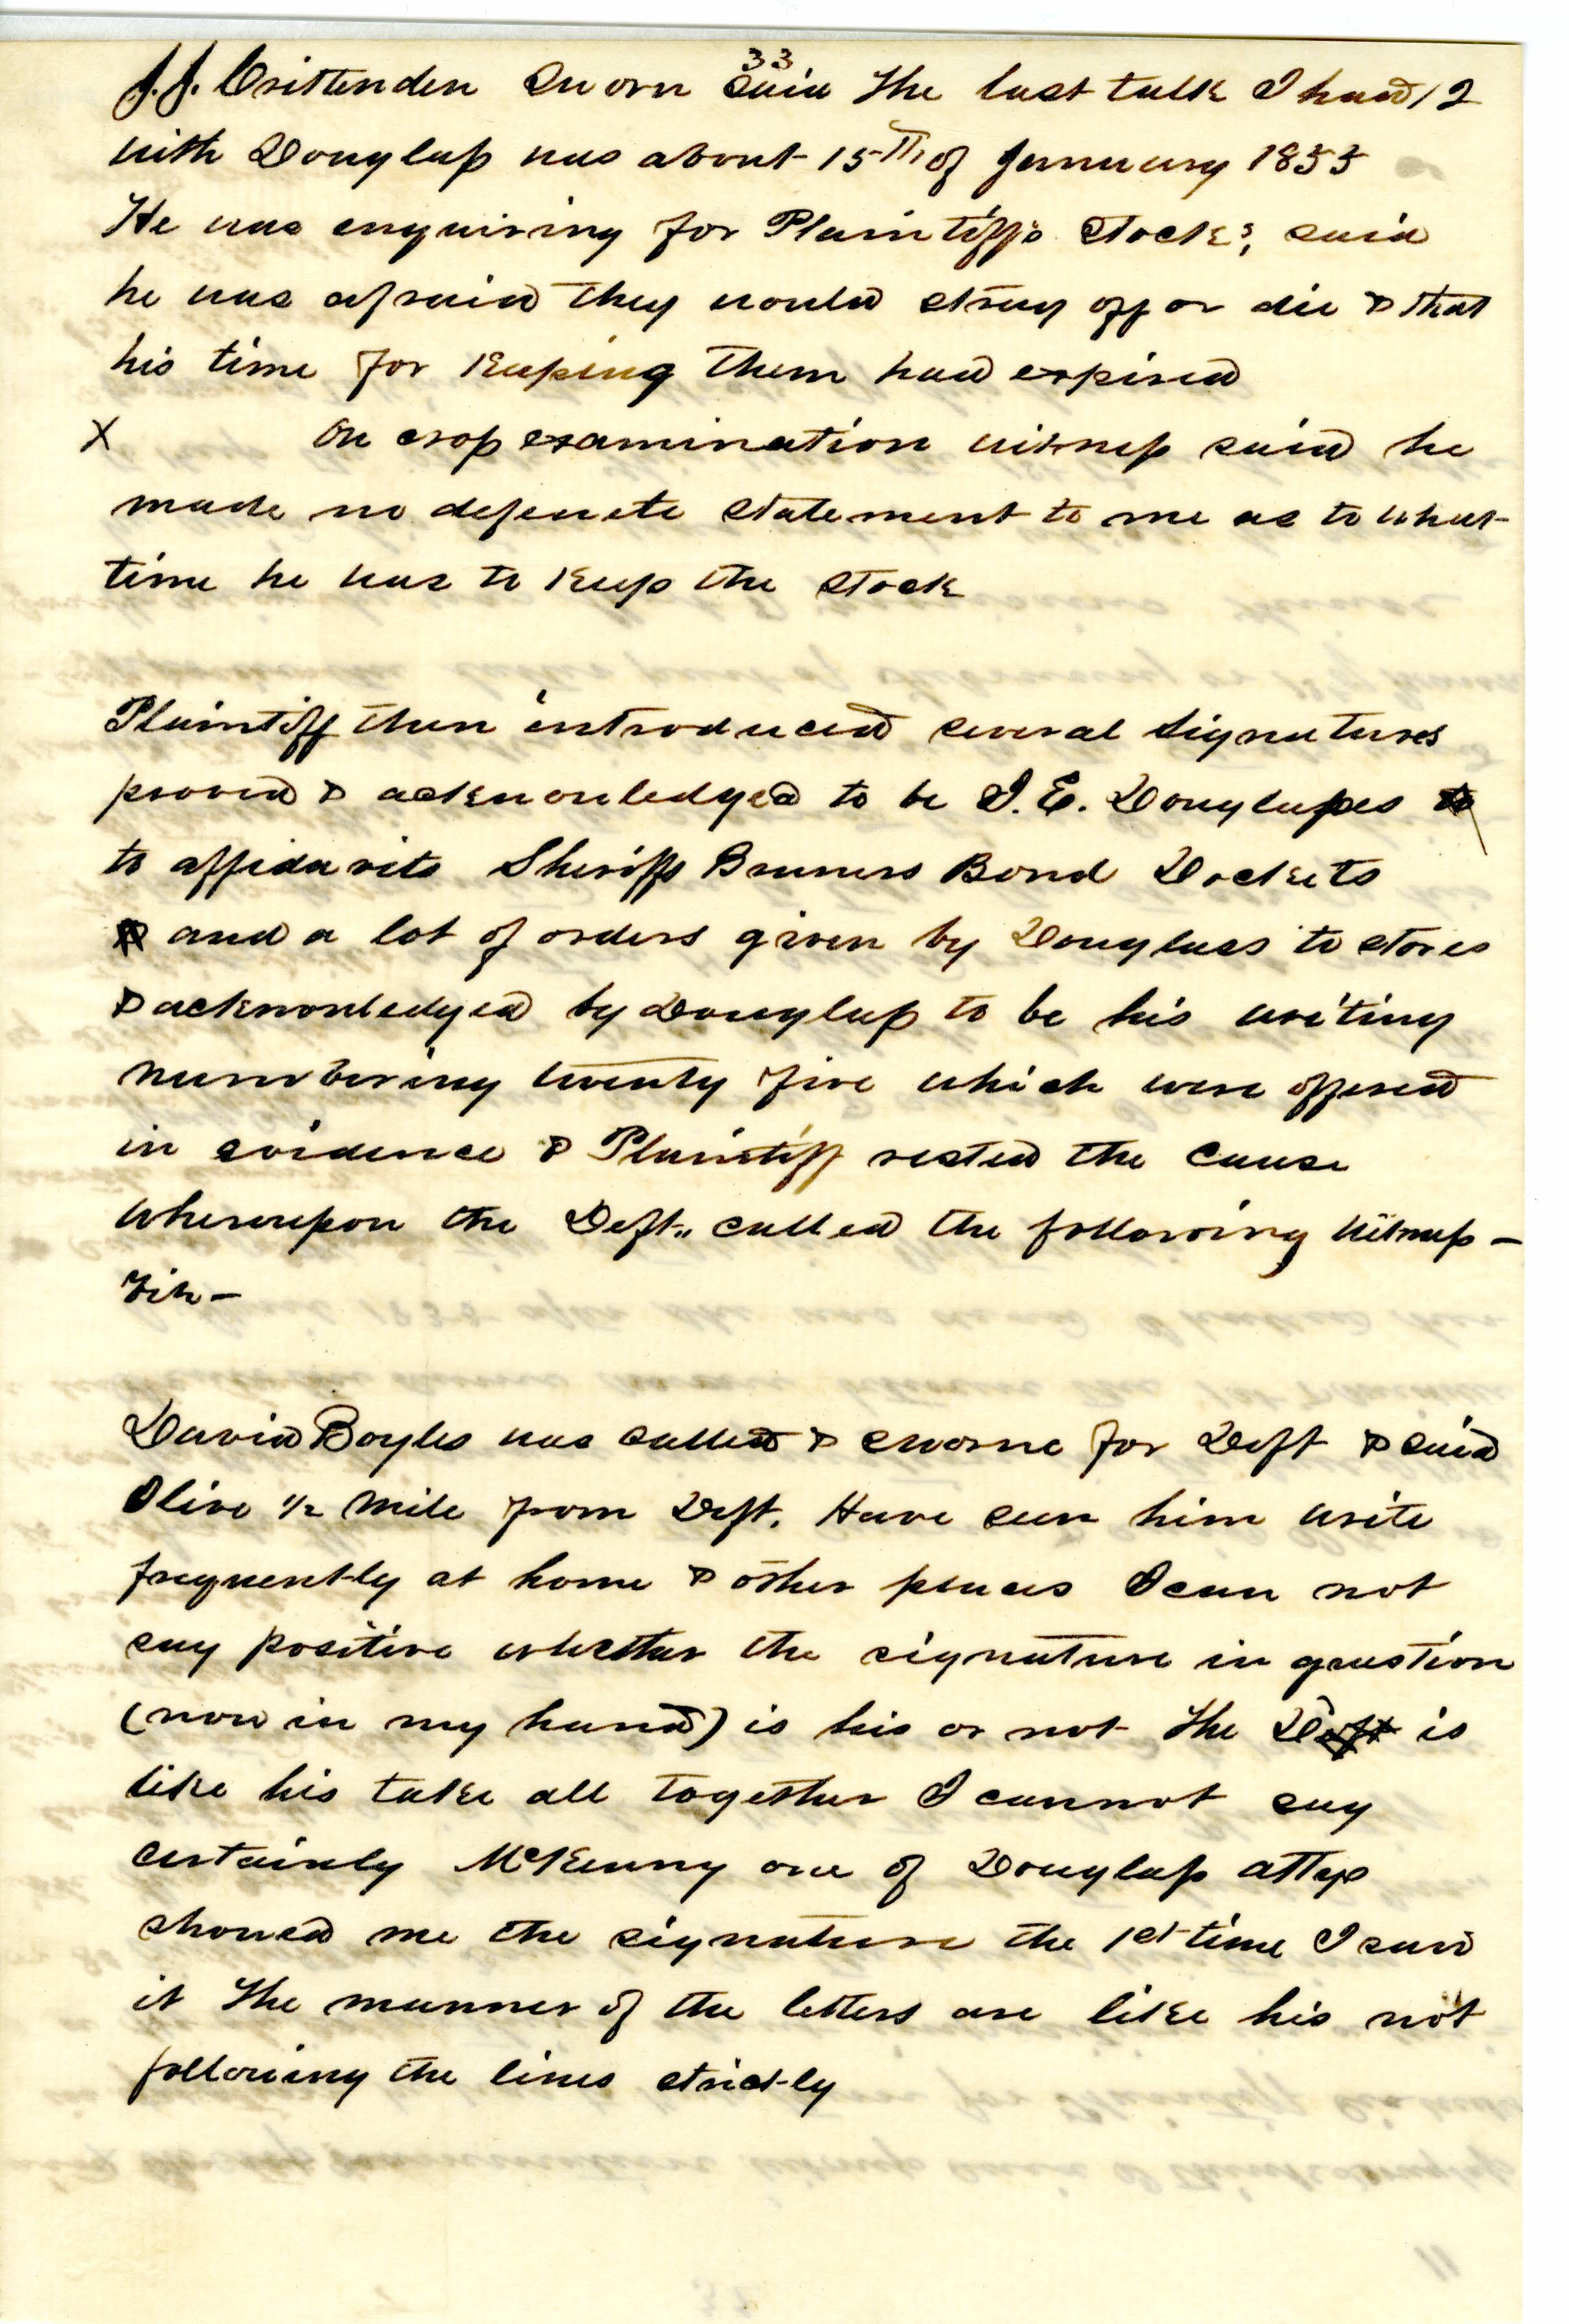 33
J.J. Crittenden Sworn Said The last talk I had 12
with Douglass was about 15th of January 1855
He was enquiring for Plaintiffs Stock; said
he was afraid they would stray off or die & that
his time for Keeping them had expired
X On cross examination witness said he
made no defenete Statement to me as to what
time he was to Keep the Stock
Plaintiff then introduced several Signatures
proved & acknowledged to be I. E. Douglasses
to affidavits Sheriffs Bruners Bond Dockets
and a lot of orders given by Douglass to stores
& acknowledged by Douglass to be his writing
numbering twenty five which were offered
in evidence & Plaintiff rested the Cause
Whereupon the Deft., called the following Witness –
Viz –
David Boyles was called & sworne for Deft & said
I live 1/2 Mile from Deft. Have seen him write
frequently at home & other places I can not
say positive whether the signature in question
(now in my hand) is his or not The D is
like his take all together I cannot say
certainly McKenny one of Douglass attys
showed me the signature the 1st time I saw
it The manner of the letters are like his not
following the lines strictly
11